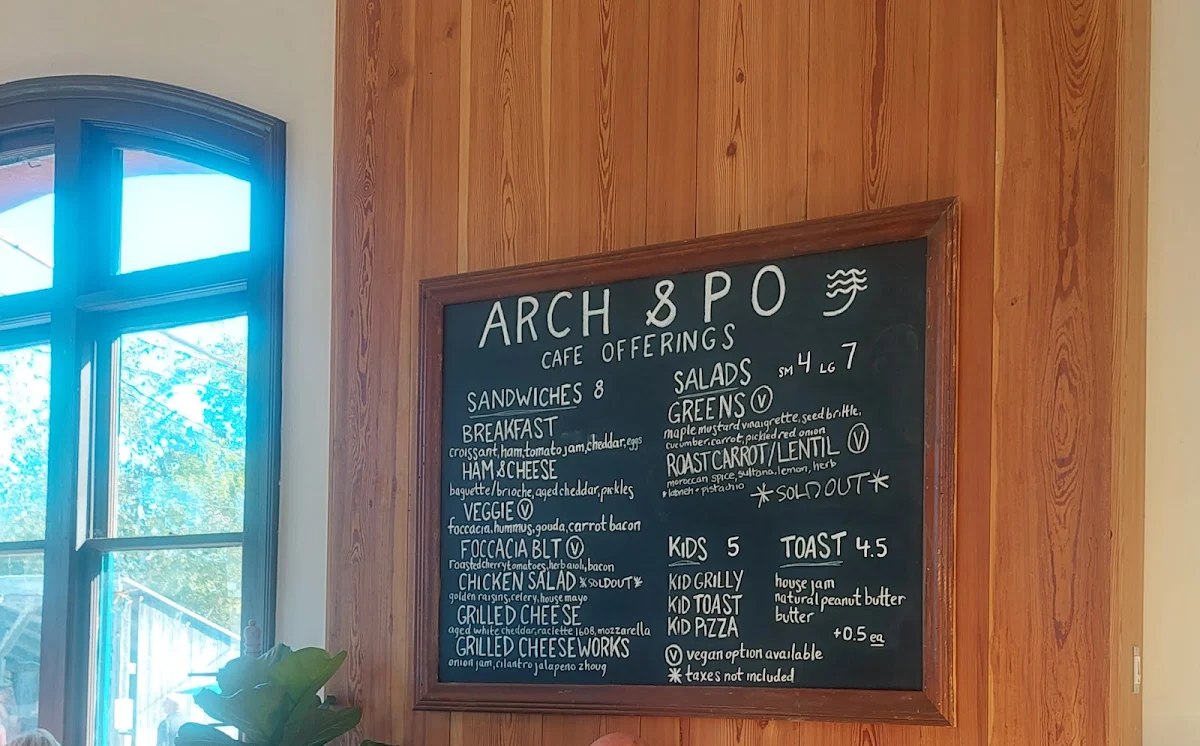 ARCH & PO
CAFE OFFERINGS
SANDWICHES 8
BREAKFAST
croissant, ham, tomato jam, cheddar, eggs
HAM & CHEESE
baguette/brioche, aged cheddar, pickles
VEGGIE V
foccacia, hummus, gouda, carrot bacon
FOCCACIA BLT V
Roasted cherry tomatoes, herb aioli, bacon
CHICKEN SALAD *SOLDOUT*
golden raisins, celery, house mayo
GRILLED CHEESE
aged white cheddar, raclette 1608, mozzarella
GRILLED CHEESEWORKS
onion jam, cilantro jalapeno zhoug
SALADS SM 4 LG 7
GREENS V
maple mustard vinaigrette, seed brittle,
cucumber, carrot, pickled red onion
ROAST CARROT/LENTIL V
moroccan spice, sultana, lemon, herb
*labneh + pistachio
*SOLD OUT*
KIDS 5
KID GRILLY
KID TOAST
KID PIZZA
TOAST 4.5
house jam
natural peanut butter
butter
+0.5 ea
V vegan option available
* taxes not included